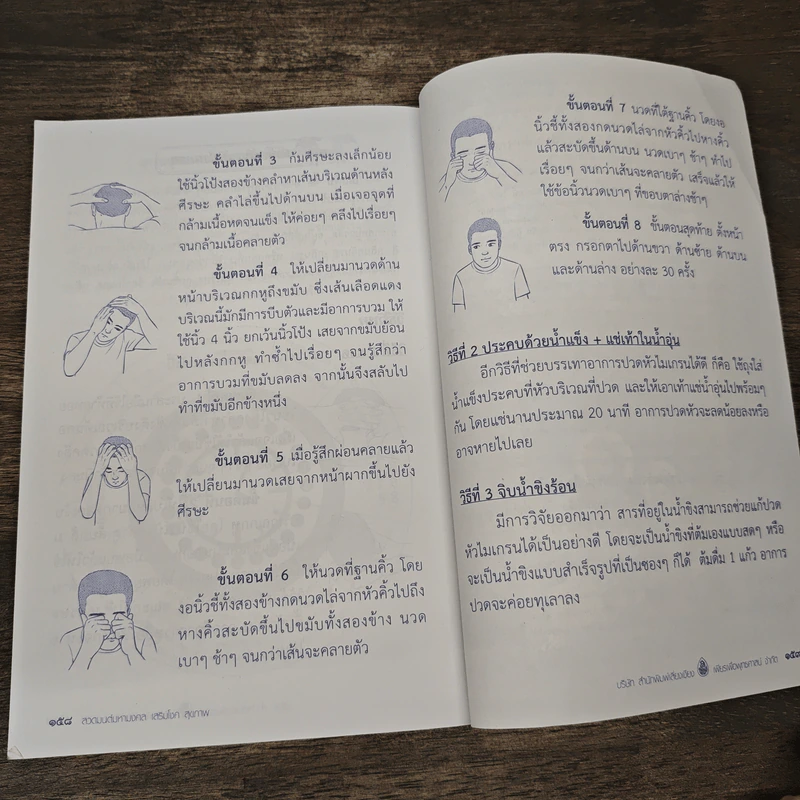 ขั้นตอนที่ 3 ก้มศีรษะลงเล็กน้อย
ใช้นิ้วโป้งสองข้างคลำหาเส้นบริเวณด้านหลัง
ศีรษะ คลำไล่ขึ้นไปด้านบน เมื่อเจอจุดที่
กล้ามเนื้อหดจนแข็ง ให้ค่อยๆ คลึงไปเรื่อยๆ
จนกล้ามเนื้อคลายตัว
ขั้นตอนที่ 4 ให้เปลี่ยนมานวดด้าน
หน้าบริเวณกกหูถึงขมับ ซึ่งเส้นเลือดแดง
บริเวณนี้มักมีการบีบตัวและมีอาการบวม ให้
ใช้นิ้ว 4 นิ้ว ยกเว้นนิ้วโป้ง เสยจากขมับย้อน
ไปหลังกกหู ทำซ้ำไปเรื่อยๆ จนรู้สึกว่า
อาการบวมที่ขมับลดลง จากนั้นจึงสลับไป
ทำที่ขมับอีกข้างหนึ่ง
ขั้นตอนที่ 5 เมื่อรู้สึกผ่อนคลายแล้ว
ให้เปลี่ยนมานวดเสยจากหน้าผากขึ้นไปยัง
ศีรษะ
ขั้นตอนที่ 6 ให้นวดที่ฐานคิ้ว โดย
งอนิ้วชี้ทั้งสองข้างกดนวดไล่จากหัวคิ้วไปถึง
หางคิ้วสะบัดขึ้นไปขมับทั้งสองข้าง นวด
เบาๆ ช้าๆ จนกว่าเส้นจะคลายตัว
๑๕๘ สวดมนต์มหามงคล เสริมโชค สุขภาพ
ขั้นตอนที่ 7 นวดที่ใต้ฐานคิ้ว โดยงอ
นิ้วชี้ทั้งสองกดนวดไล่จากหัวคิ้วไปหางคิ้ว
แล้วสะบัดขึ้นด้านบน นวดเบาๆ ช้าๆ ทำไป
เรื่อยๆ จนกว่าเส้นจะคลายตัว เสร็จแล้วให้
ใช้ข้อนิ้วนวดเบาๆ ที่ขอบตาล่างช้าๆ
ขั้นตอนที่ 8 ขั้นตอนสุดท้าย ตั้งหน้า
ตรง กรอกตาไปด้านขวา ด้านซ้าย ด้านบน
และด้านล่าง อย่างละ 30 ครั้ง
วิธีที่ 2 ประคบด้วยน้ำแข็ง + แช่เท้าในน้ำอุ่น
อีกวิธีที่ช่วยบรรเทาอาการปวดหัวไมเกรนได้ดี ก็คือ ใช้ถุงใส่
น้ำแข็งประคบที่หัวบริเวณที่ปวด และให้เอาเท้าแช่น้ำอุ่นไปพร้อมๆ
กัน โดยแช่นานประมาณ 20 นาที อาการปวดหัวจะลดน้อยลงหรือ
อาจหายไปเลย
วิธีที่ 3 จิบน้ำขิงร้อน
มีการวิจัยออกมาว่า สารที่อยู่ในน้ำขิงสามารถช่วยแก้ปวด
หัวไมเกรนได้เป็นอย่างดี โดยจะเป็นน้ำขิงที่ต้มเองแบบสดๆ หรือ
จะเป็นน้ำขิงแบบสำเร็จรูปที่เป็นซองๆ ก็ได้ ต้มดื่ม 1 แก้ว อาการ
ปวดจะค่อยทุเลาลง
บริษัท สำนักพิมพ์เลี่ยงเชียง เพียรเพื่อพุทธศาสน์ จำกัด ๑๕๙